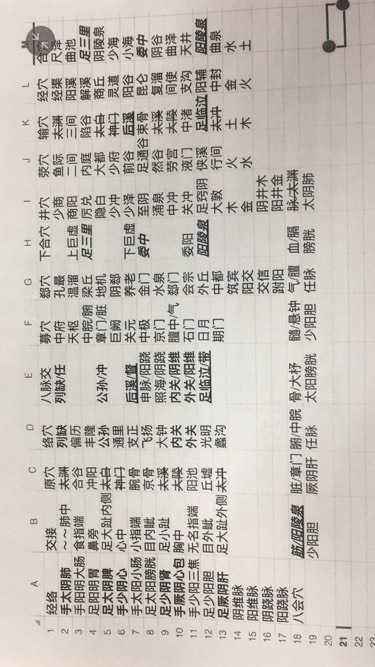 A B C D E F G H I J K L M
1 经络 交接 原穴 络穴 八脉交 募穴 郄穴 下合穴 井穴 荥穴 输穴 经穴 合穴
2 手太阴肺 ~~肺中 太渊 列缺 列缺/任 中府 孔最 少商 鱼际 太渊 经渠 尺泽
3 手阳明大肠 食指端 合谷 偏历 天枢 温溜 上巨虚 商阳 二间 三间 阳溪 曲池
4 足阳明胃 鼻旁 冲阳 丰隆 中脘/腑 梁丘 足三里 厉兑 内庭 陷谷 解溪 足三里
5 足太阴脾 足大趾内侧 太白 公孙 公孙/冲 章门/脏 地机 隐白 大都 太白 商丘 阴陵泉
6 手少阴心 心中 神门 通里 巨阙 阴郄 少冲 少府 神门 灵道 少海
7 手太阳小肠 小指端 腕骨 支正 后溪/督 关元 养老 下巨虚 少泽 前谷 后溪 阳谷 小海
8 足太阳膀胱 目内眦 京骨 飞扬 申脉/阳跷 中极 金门 委中 至阴 足通谷 束骨 昆仑 委中
9 足少阴肾 足小趾 太溪 大钟 照海/阴跷 京门 水泉 涌泉 然谷 太溪 复溜 阴谷
10 手厥阴心包 胸中 大陵 内关 内关/阴维 膻中/气 郄门 中冲 劳宫 大陵 间使 曲泽
11 手少阳三焦 无名指端 阳池 外关 外关/阳维 石门 会宗 委阳 关冲 液门 中渚 支沟 天井
12 足少阳胆 目外眦 丘墟 光明 足临泣/带 日月 外丘 阳陵泉 足窍阴 侠溪 足临泣 阳辅 阳陵泉
13 足厥阴肝 足大趾外侧 太冲 蠡沟 期门 中都 大敦 行间 太冲 中封 曲泉
14 阴维脉 筑宾 木 火 土 金 水
15 阳维脉 阳交 金 水 木 火 土
16 阴跷脉 交信 阴井木
17 阳跷脉 跗阳 阳井金
18 八会穴 筋/阳陵泉 脏/章门 腑/中脘 骨/大杼 髓/悬钟 气/膻 血/膈 脉/太渊
19 少阳胆 厥阴肝 任脉 太阳膀胱 少阳胆 任脉 膀胱 太阴肺
20
21
22
23